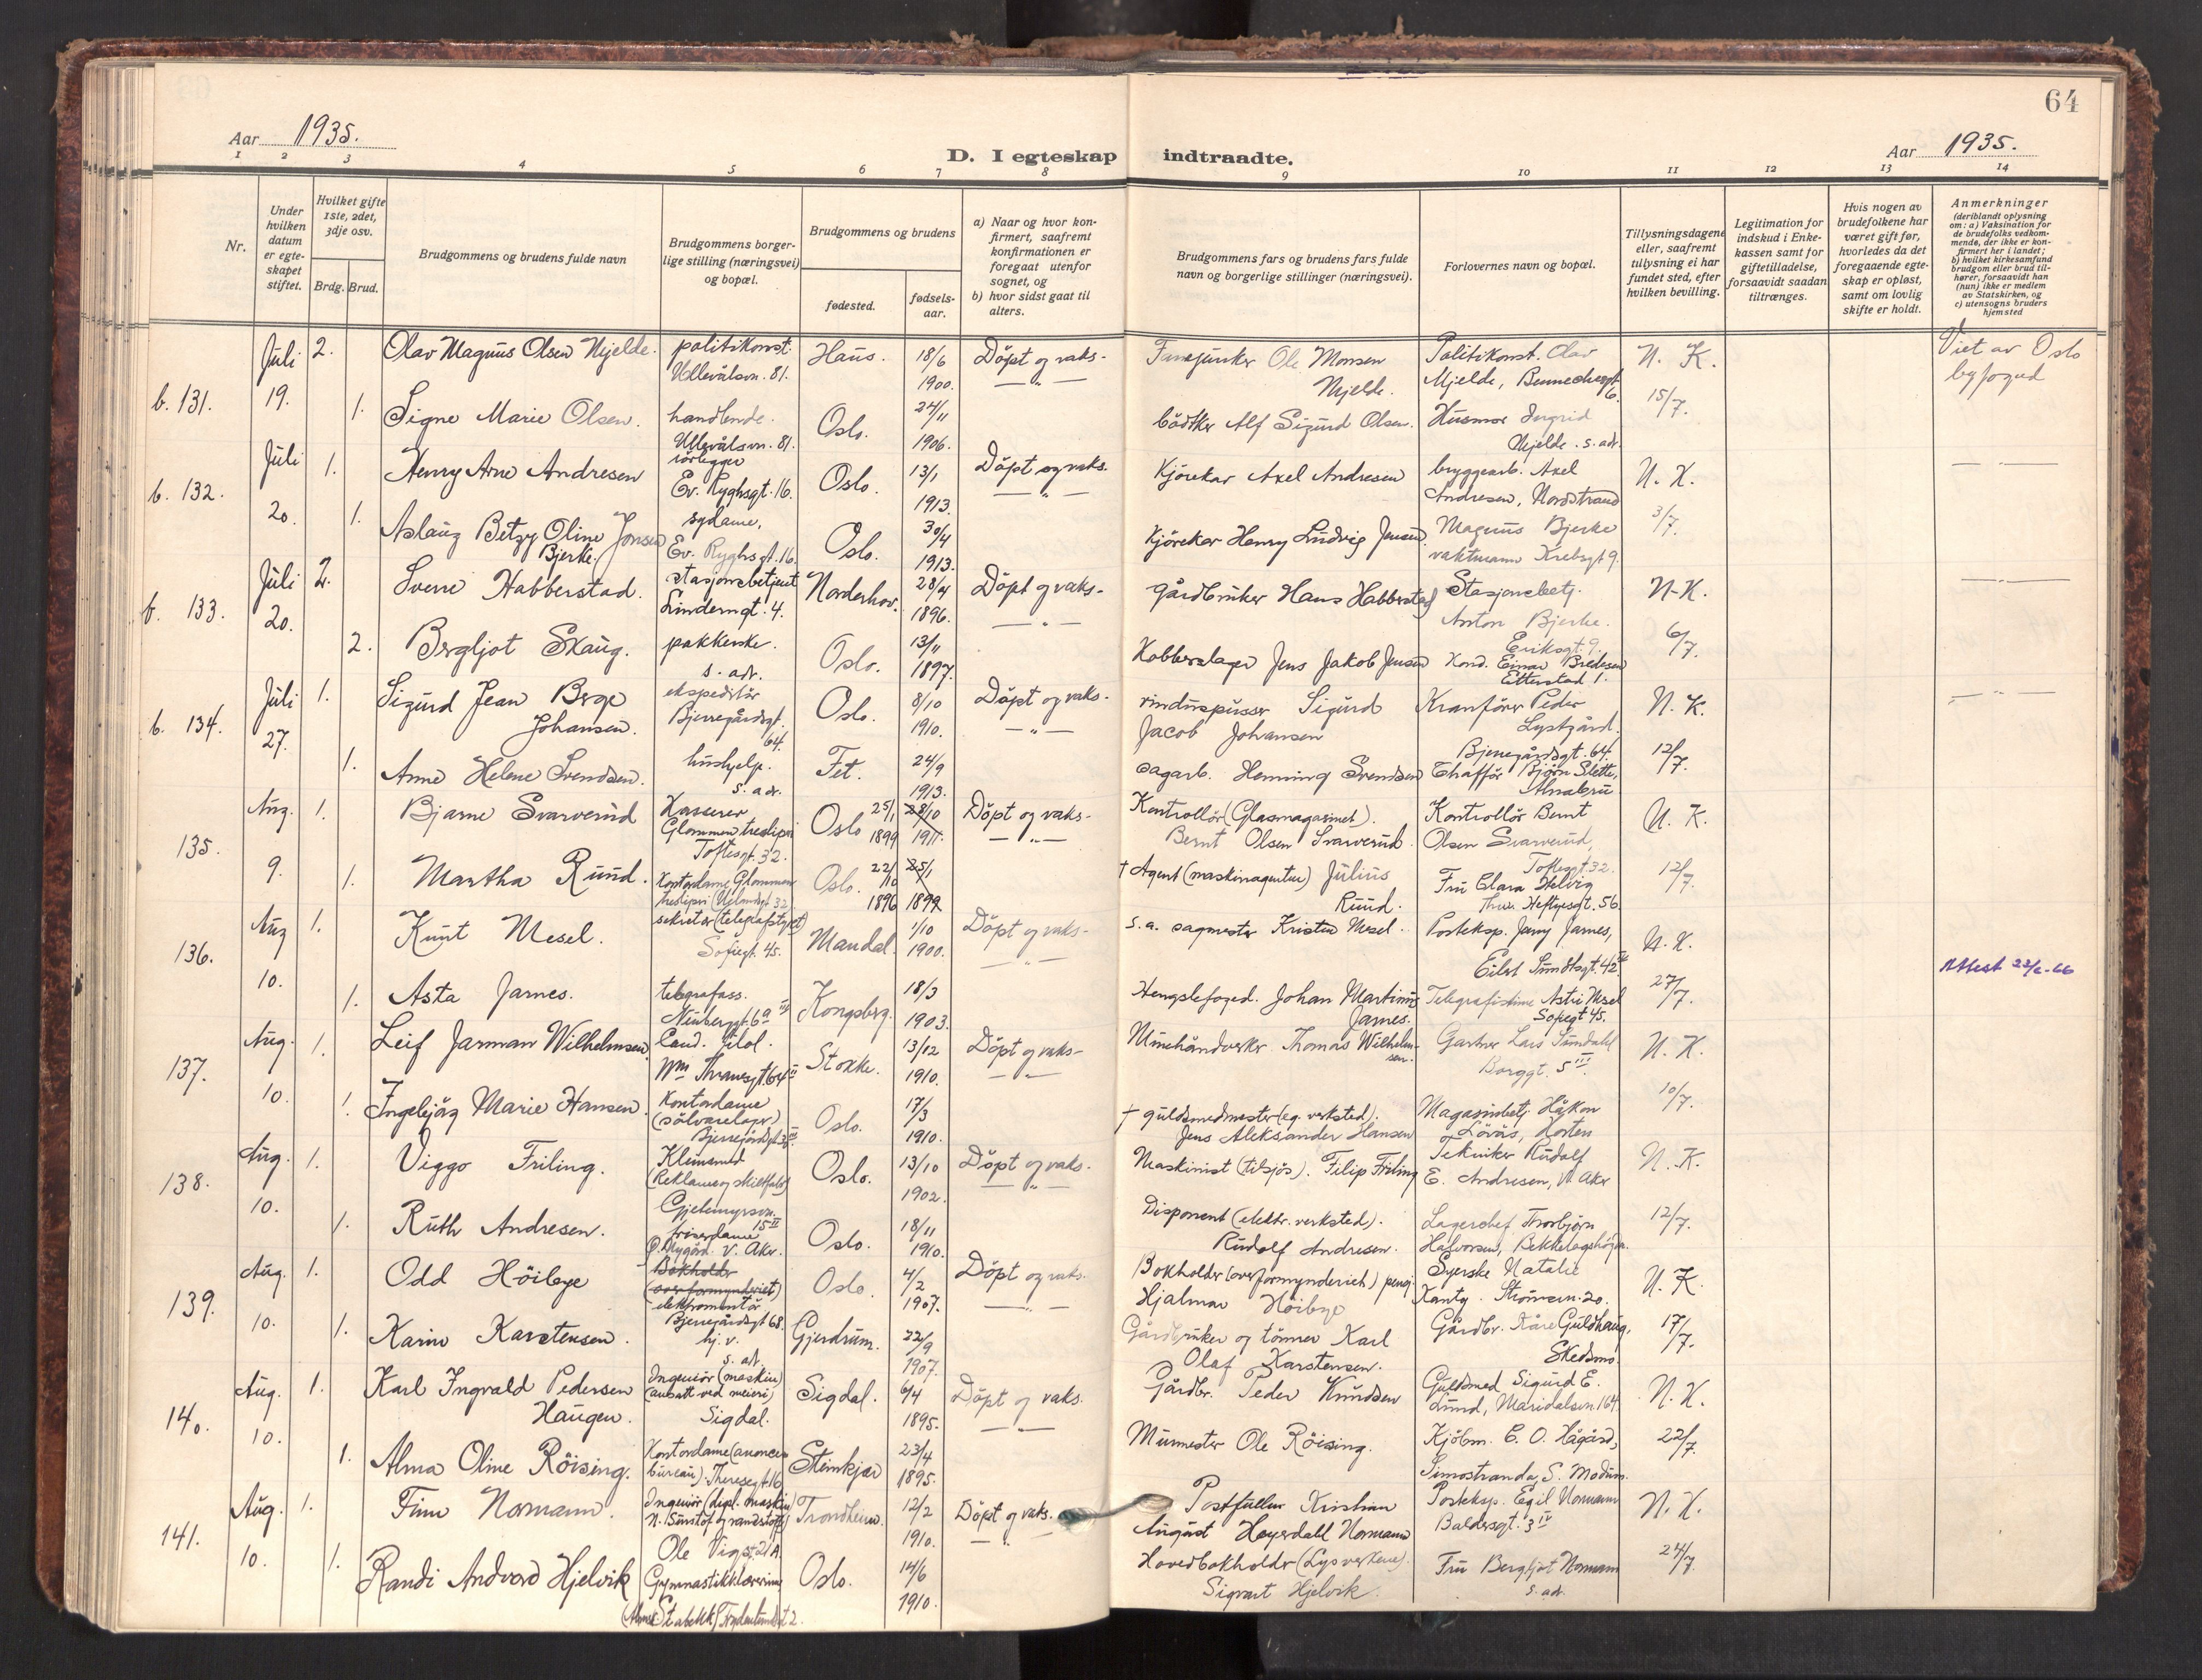 64
Aar 1935.
D. I egteskap indtraadte.
Aar 1935.
1 2 3 4 5 6 7 8 9 10 11 12 13 14
Nr.
Under hvilken datum er egte-skapet stiftet.
Hvilket gifte 1ste, 2det, 3dje osv.
Brdg. Brud.
Brudgommens og brudens fulde navn
Brudgommens borger-lige stilling (næringsvei) og bopæl.
Brudgommens og brudens
fødested.
fødsels-aar.
a) Naar og hvor kon-firmert, saafremt konfirmationen er foregaat utenfor sognet, og
b) hvor sidst gaat til alters.
Brudgommens fars og brudens fars fulde navn og borgerlige stillinger (næringsvei).
Forlovernes navn og bopæl.
Tillysningsdagene eller, saafremt tillysning ei har fundet sted, efter hvilken bevilling.
Legitimation for indskud i Enke-kassen samt for giftetilladelse, forsaavidt saadan tiltrænges.
Hvis nogen av brudefolkene har været gift før, hvorledes da det foregaaende egte-skap er opløst, samt om lovlig skifte er holdt.
Anmerkninger
(deriblandt oplysning om: a) Vaksination for de brudefolks vedkom-mende, der ikke er kon-firmert her i landet; b) hvilket kirkesamfund brudgom eller brud til-hører, forsaavidt han (hun) ikke er medlem av Statskirken, og c) utensogns bruders hjemsted
b. 131. Juli 19. 2. Olav Magnus Olsen Mjelde. politikonst. Ullevålsvn. 81. Haus. 18/6 1900. Döpt og vaks. Ole Monsen Mjelde. Politikonst. Olav Mjelde, 6. N. K. 15/7. Viet av Oslo byfogud
1. Signe Marie Olsen. Ullevålsvn. 81. Oslo. 24/11 1906. bödtker Alf Sigurd Olsen. Husmor Ingrid Mjelde. s. adr.
b. 132. Juli 20. 1. Henry Arne Andresen rörlegger Ev. Ryghsgt. 16. Oslo. 13/1 1913. Döpt og vaks. Kjörekar Axel Andresen bryggearb. Axel Andresen, Nordstrand N. K. 3/7.
1. Aslaug Betzy Oline Jensen Bjerke. sydame, Ev. Ryghsgt. 16. Oslo. 30/4 1913. Kjörekar Henry Ludvig Jensen. Magnus Bjerke vaktmann Krebsgt 9.
b. 133. Juli 20. 2. Sverre Habberstad. stasjonsbetjent Linderngt. 4. Norderhov. 28/4 1896. Döpt og vaks. Gårdbruker Hans Habberstad Stasjonsbetj. Anton Bjerke. Eriksgt. 9. N. K. 6/7.
2. Bergljot Skaug. pakkerske. s. adr. Oslo. 13/11 1897. Kobberslager Jens Jakob Jensen Kond. Einar Bredesen Etterstad 1.
b. 134. Juli 27. 1. Sigurd Jean Berge Johansen. ekspeditör Bjerregårdsgt. 64. Oslo. 8/10 1910. Döpt og vaks. vinduspusser Sigurd Jacob Johansen Kranförer Peder Lystgård. Bjerregårdsgt. 64. N. K. 12/7.
1. Anne Helene Svendsen. hushjelp. s. adr. Fet. 24/9 1913. sagarb. Henning Svendsen Chafför Björn Slette, Alnabru
135. Aug. 9. 1. Bjarne Svarverud Kasserer Glommen tresliperi Toftesgt. 32. Oslo 25/1 1899 28/10 1911. Döpt og vaks. Kontrollör (Glasmagasinet). Bernt Olsen Svarverud. Kontrollör Bernt Olsen Svarverud, Toftesgt 32. N. K. 12/7.
1. Martha Ruud. Kontordame Glommen tresliperi Oslo. 22/10 1896 25/1 1899 † Agent (maskinagentur) Julius Ruud. Fru Clara Helvig Thv. Heftyesgt. 56.
136. Aug 10. 1. Knut Mesel. sekretær (telegrafstyret) Sofiegt. 45. Mandal. 1/10 1900. Döpt og vaks. s. a. sagmester Kristen Mesel. Posteksp. Jenny Jarnes, Eilert Sundtsgt. 42 N. K. 27/7. Attest 22/6-66
1. Asta Jarnes. telegrafass. Neuberggt. 6a Kongsberg. 18/3 1903. Hengslefoged. Johan Martinus Jarnes. Telegrafistinne Astri Mesel Sofiegt 45.
137. Aug. 10. 1. Leif Jarman Wilhelmsen. Cand. filol. Wm Thranesgt. 64 II Stokke. 13/12 1910. Döpt og vaks. Minehåndverker Thomas Wilhelmsen. Gartner Lars Sundahl Borggt. 5 III. N. K. 10/7.
1. Ingebjög Marie Hansen. Kontordame (sölvvareforr.) Oslo. 17/3 1910. † guldsmedmester (eg. verksted). Jens Aleksander Hansen Magasinbetj. Håkon Lövås, Horten
138. Aug. 10. 1. Viggo Friling. Kleinsmed (Reklame og skiltfabr.) Gjetemyrsvn. 15 II Oslo. 13/10 1902. Döpt og vaks. Maskinist (tilsjös). Filip Friling og Tekniker Rudolf E. Andresen, V. Aker N. K. 12/7.
1. Ruth Andresen. friserdame V. Aker. Oslo. 18/11 1910. Disponent (elektr. verksted). Rudolf Andresen. Lagerchef Thorbjörn Halvorsen, Bekkelagshögda.
139. Aug. 10. 1. Odd Höibye Bokholder (overformynderiet) elektromontör Bjerregårdsgt 68. Oslo. 4/2 1907. Döpt og vaks. Bokholder (overformynderiet) pensj. Hjalmar Höibye Syerske Natalie Kanty. Strömsvn. 20. N. K. 17/7.
1. Karin Karstensen. hj. v. s. adr. Gjerdrum. 22/9 1907. Gårdbruker og tömmer Karl Olaf Karstensen. Gårdbr. Kåre Guldhaug, Skedsmo.
140. Aug. 10. 1. Karl Ingvald Pedersen Haugen. Ingeniör (maskin) (ansatt ved meieri) Sigdal. Sigdal. 6/4 1895. Döpt og vaks. Gårdbr. Peder Knudsen Guldsmed Sigurd E. Lund, Maridalsvn. 164. N. K. 22/7.
1. Alma Oline Röising. Kontordame (annonce bureau). Theresegt. 16 Steinkjær 23/4 1895. Murmester Ole Röising. Kjöbm. C. O. Hågård, Simostranda, S. Modum.
141. Aug. 10. 1. Finn Normann. Ingeniör (dipl. maskin) Ole Vigsgt. 21 A. Trondheim. 12/2 1910. Döpt og vaks. Postfullm. Kristian August Heyerdahl Normann Posteksp. Egil Normann Baldersgt. 3 IV N. K. 24/7.
1. Randi Andvord Hjelvik Gymnastikklærerinne Oslo. 14/6 1910. Hovedbokholder (Lysverkene). Sigvart Hjelvik. Fru Bergljot Normann s. adr.